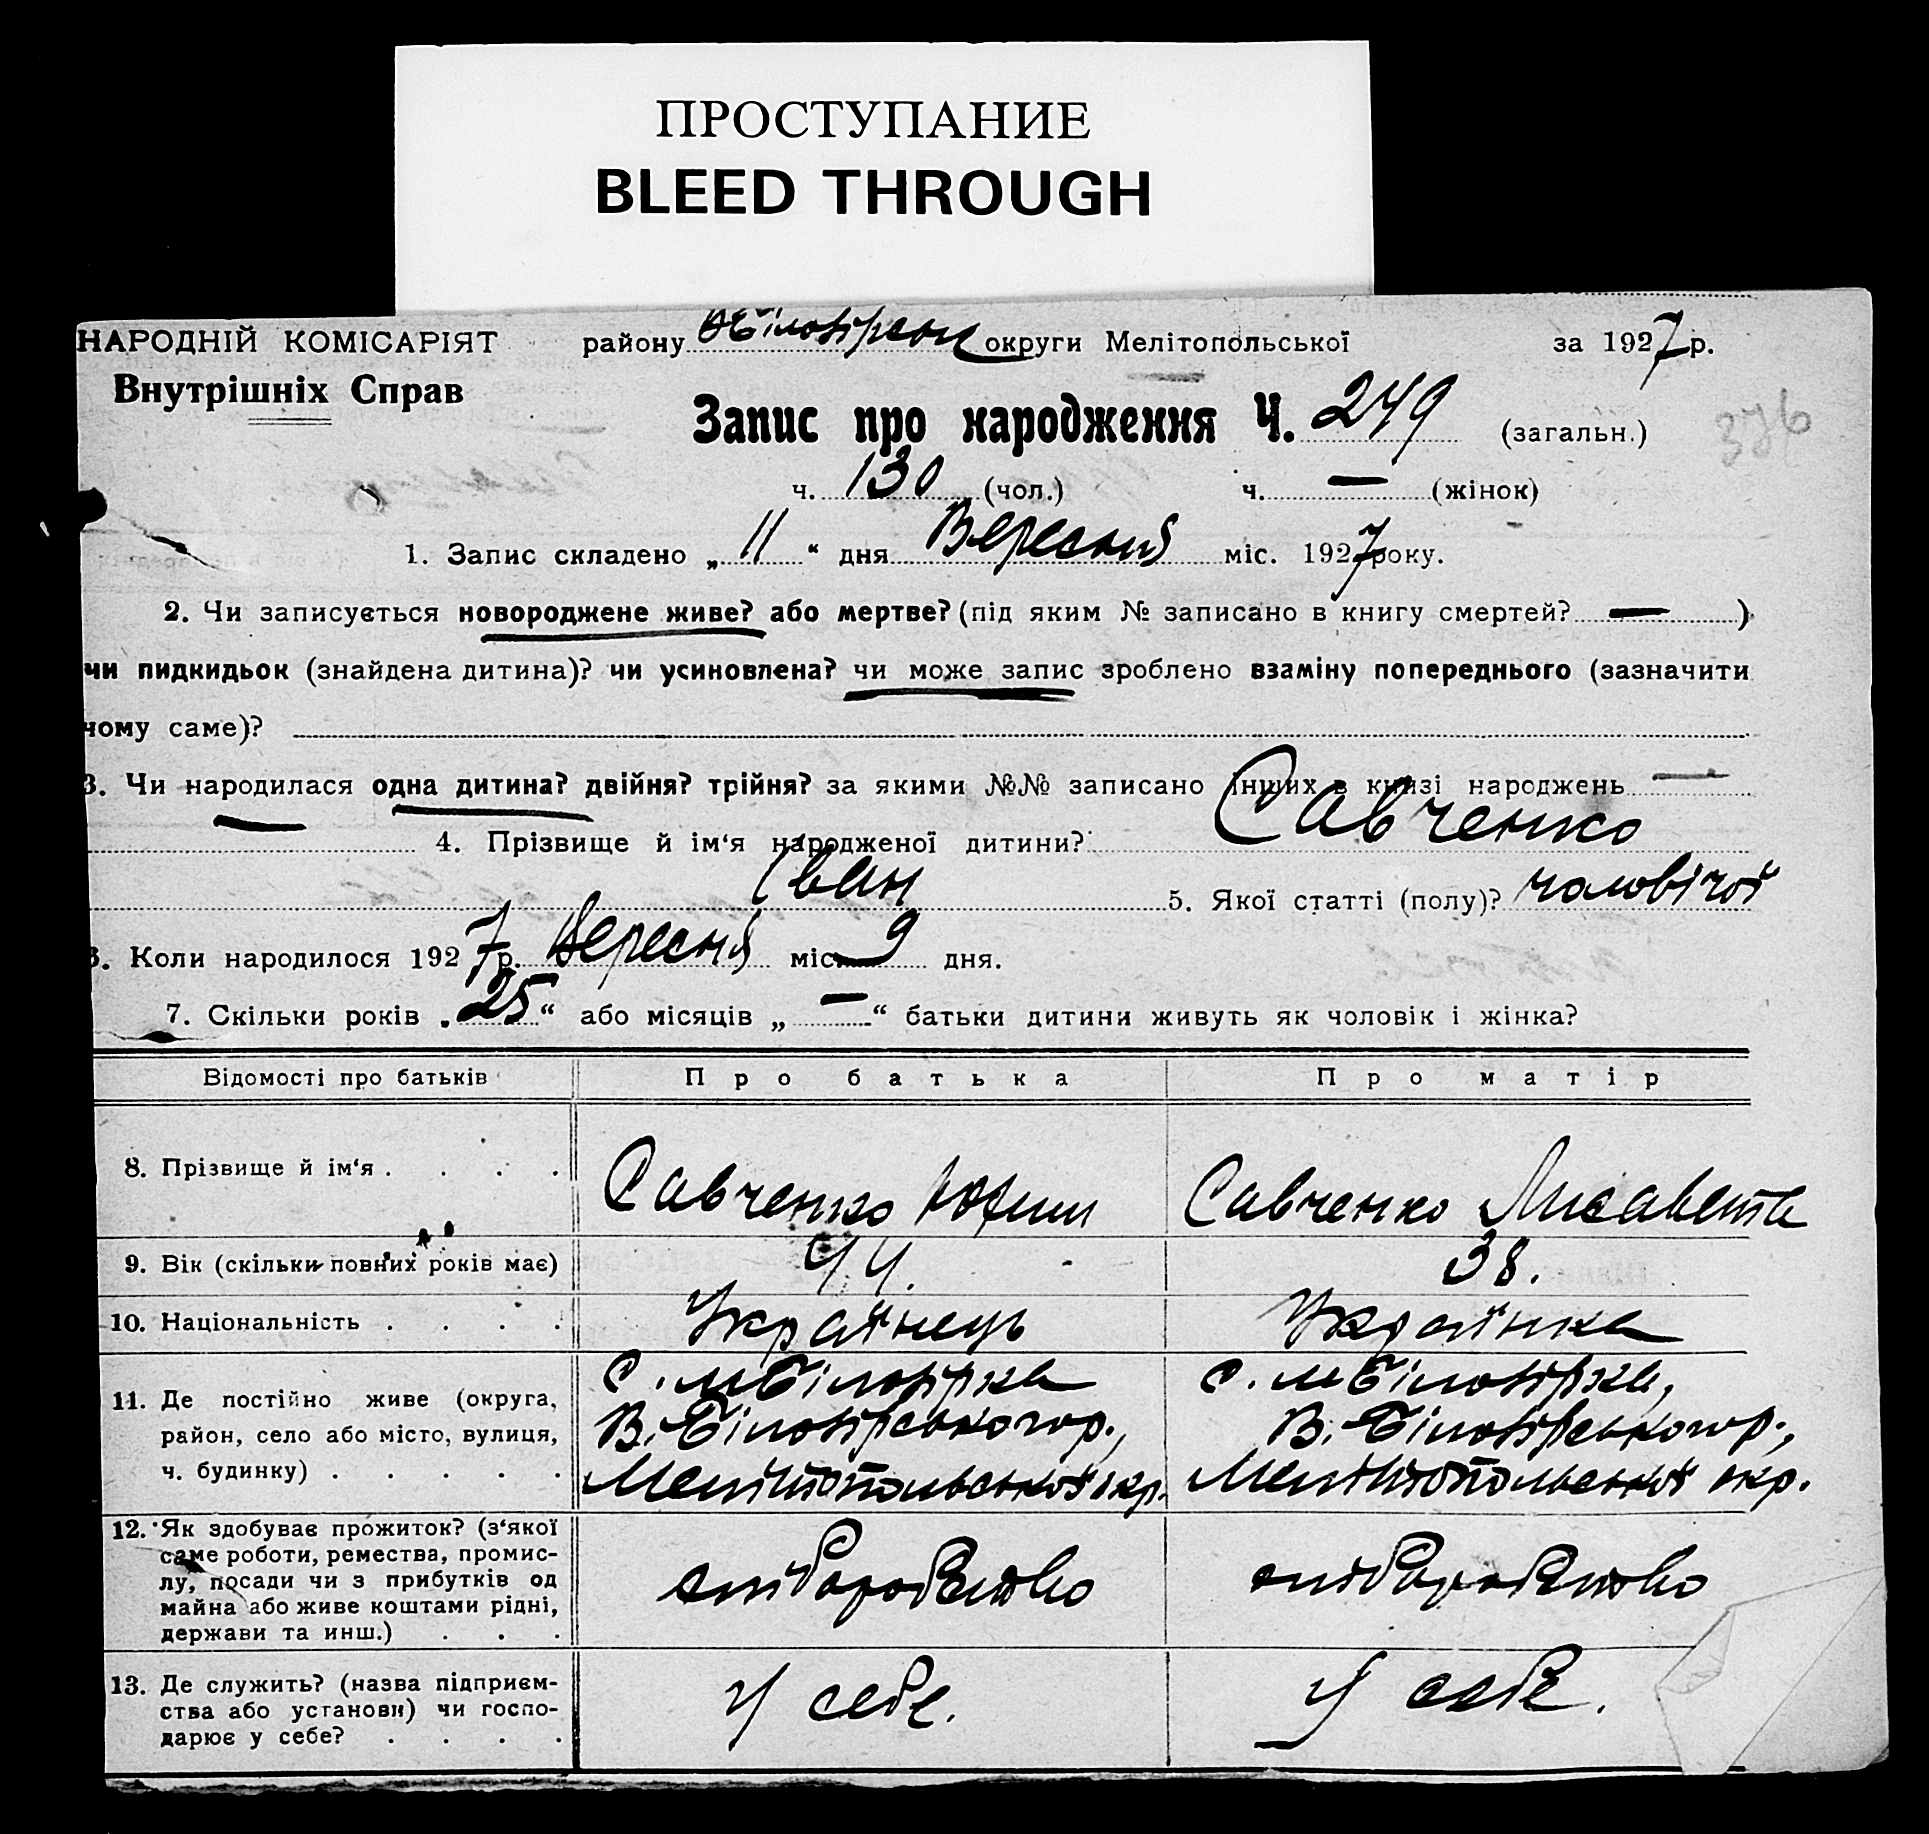 ПРОСТУПАНИЕ
BLEED THROUGH
НАРОДНІЙ КОМІСАРІЯТ району округи Мелітопольської за 1927 р.
Внутрішніх Справ
Запис про народження Ч. 249 (загальн.) 376
ч. 130 (чол.) ч. — (жінок)
1. Запис складено „11“ дня Вересня міс. 1927 року.
2. Чи записується новороджене живе? або мертве? (під яким № записано в книгу смертей? — )
чи пидкидьок (знайдена дитина)? чи усиновлена? чи може запис зроблено взаміну попереднього (зазначити
чому саме)?
3. Чи народилася одна дитина? двійня? трійня? за якими №№ записано інших в книзі народжень —
4. Прізвище й ім‘я народженої дитини? Савченко
Іван 5. Якої статті (полу)? чоловічої
6. Коли народилося 1927 р. Вересня міс. 9 дня.
7. Скільки років „25“ або місяців „—“ батьки дитини живуть як чоловік і жінка?
Відомості про батьків Про батька Про матір
8. Прізвище й ім‘я . . . . Савченко Юхим Савченко Лисавета
9. Вік (скільки повних років має) 44. 38.
10. Національність . . . . Українець Українка
11. Де постійно живе (округа, с. мБілозірка с. мБілозірка,
район, село або місто, вулиця, В. Білозірського р., В. Білозірського р.,
ч. будинку) . . . . . Мелітопольської окр. Мелітопольської окр.
12. Як здобуває прожиток? (з‘якої
саме роботи, ремества, промис-
лу, посади чи з прибутків од хліборобство хліборобство
майна або живе коштами рідні,
держави та инш.) . . .
13. Де служить? (назва підприєм-
ства або установи) чи госпо- У себе. У себе.
дарює у себе? . . . .